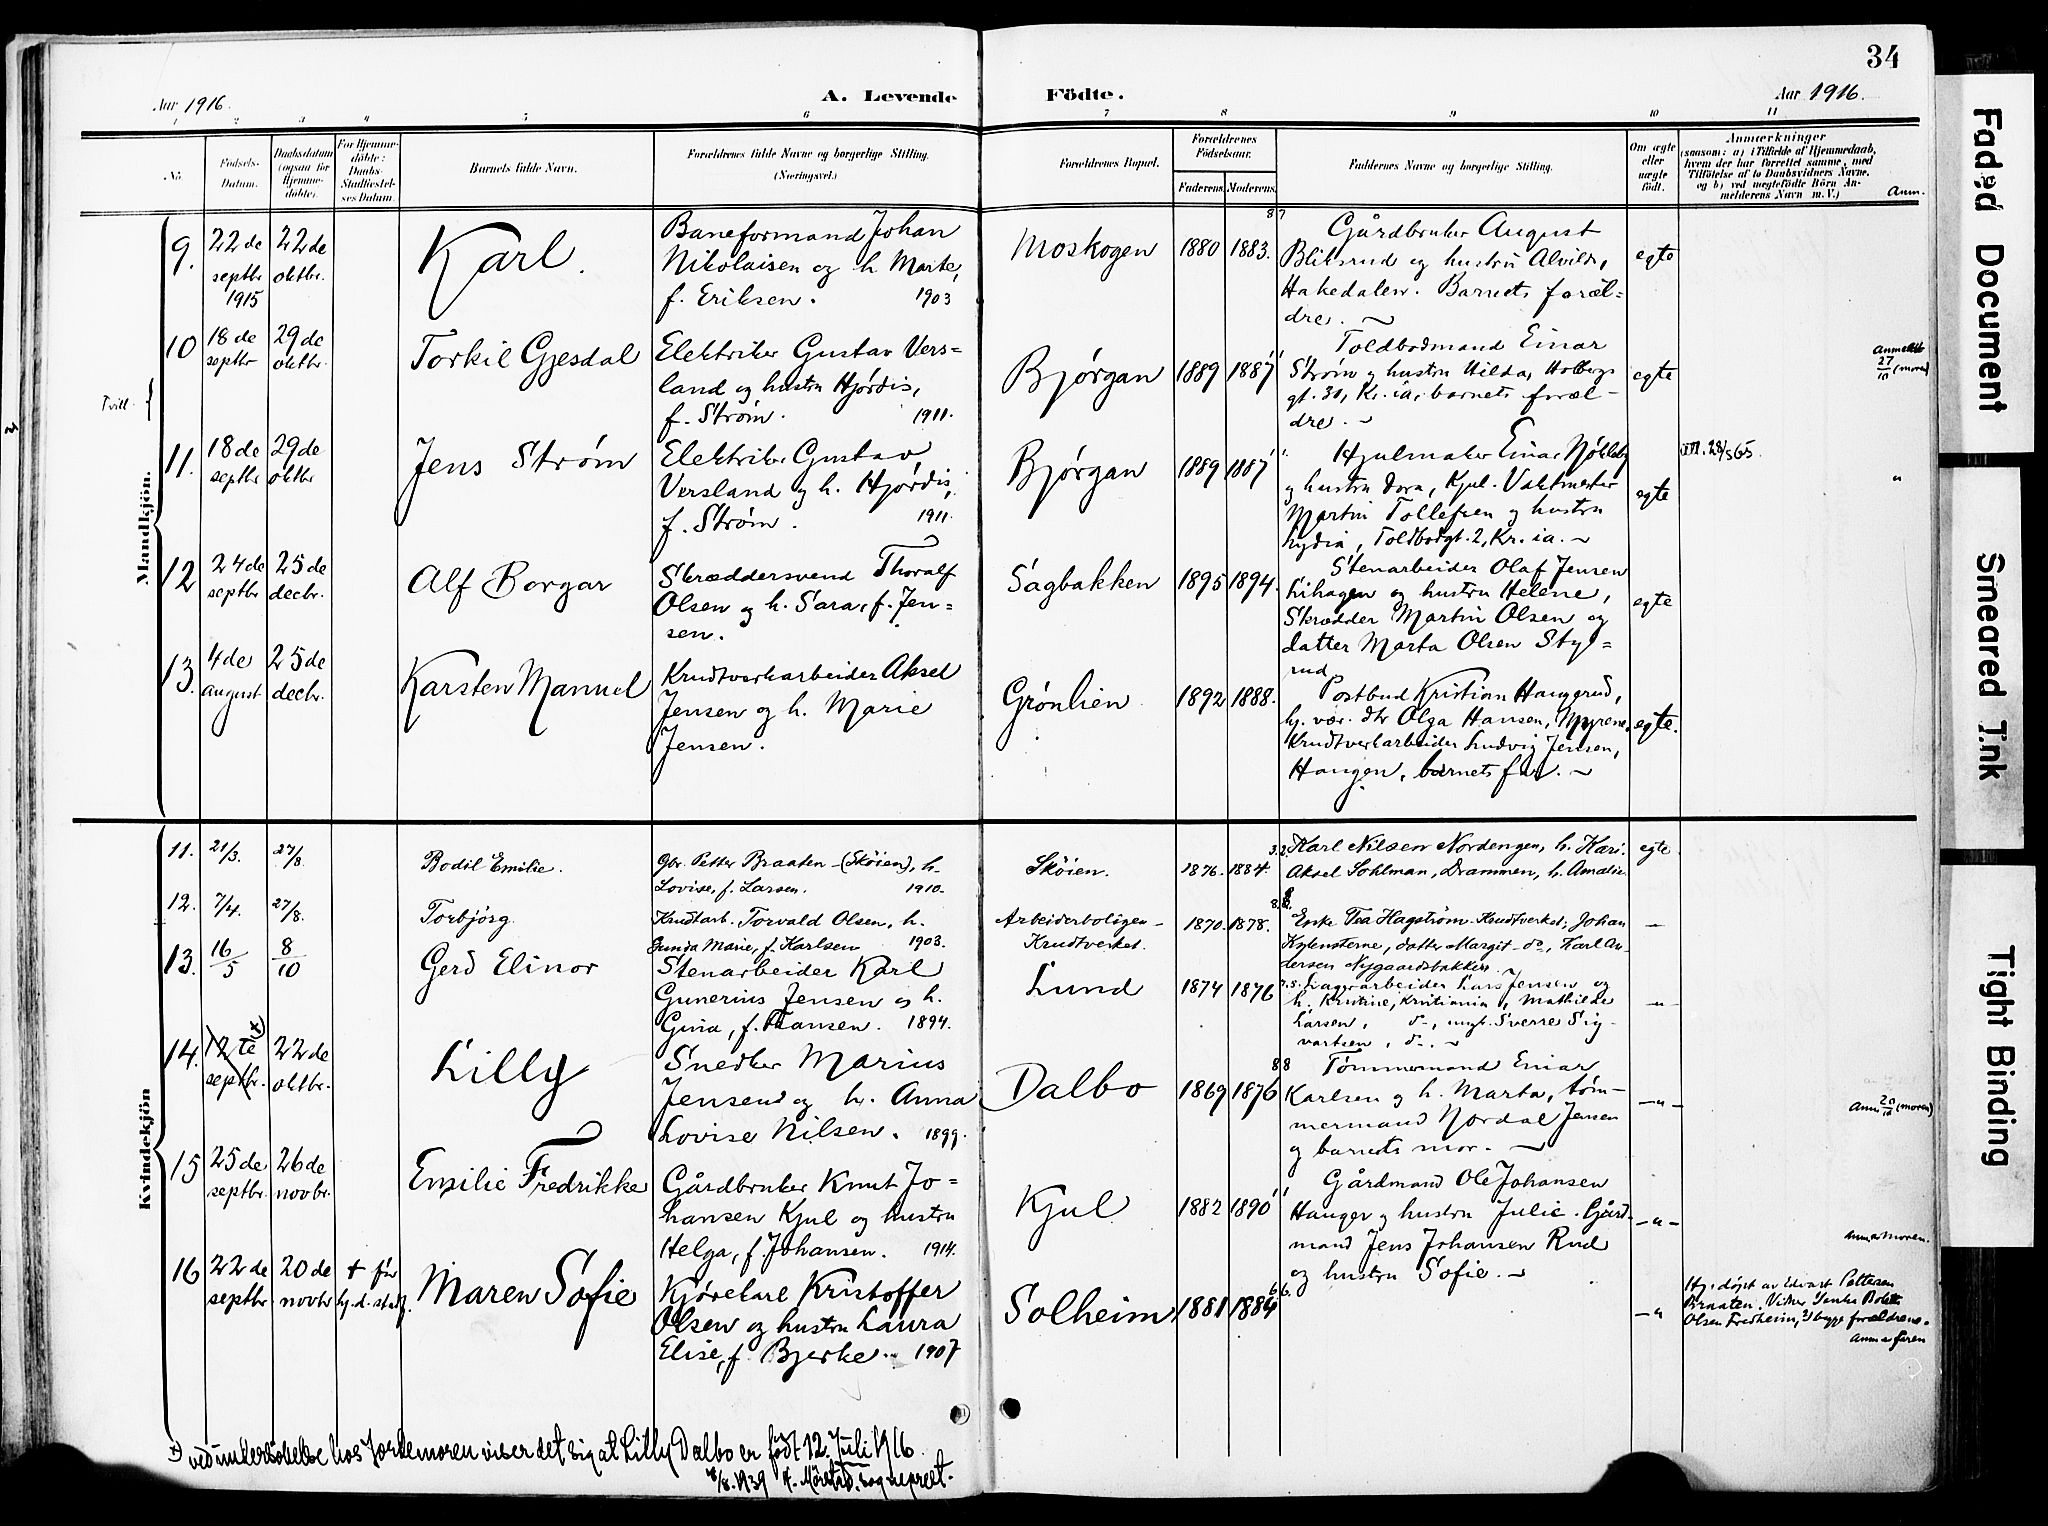 34
Aar 1916.
A. Levende Födte.
Aar 1916.
1 2 3 4 5 6 7 8 9 10 11
No.
Födsels-Datum.
Daabsdatum (ogsaa for Hjemmedöbte).
For Hjemmedöbte: Daabs-Stadfæstelses Datum.
Barnets fulde Navn.
Forældrenes fulde Navne og borgerlige Stilling.
(Næringsvei.)
Forældrenes Bopæl.
Forældrenes Födselsaar.
Faderens. Moderens.
Faddernes Navne og borgerlige Stilling.
Om ægte eller uægte födt.
Anmærkninger
(saasom: a) i Tilfælde af Hjemmedaab, hvem der har forrettet samme, med Tilföielse af to Daabsvidners Navne, og b) ved uegtefödte Börn Anmelderens Navn m. V.)
Anm.
Mandkjön.
9. 22de septbr 1915
22de oktbr.
Karl.
Baneformand Johan
Nikolaisen og h. Marte,
f. Eriksen. 1903
Moskogen
1880 1883.
87
Gårdbruker August
Bliksrud og hustru Alvilde,
Hakedalen. Barnets foræl-
dre.
egte
Tvill.
10 18de septbr
29de oktbr.
Torkil Gjesdal
Elektriker Gustav Vers-
land og hustru Hjørdis,
f. Strøm. 1911.
Bjørgan
1889 1887
Toldbodmand Einar
Strøm og hustru Hilda, Holbergs
gt. 30, Kr.ia, barnets foræl-
dre.
egte
Anmeldt
27/10 (moren)
11. 18de septbr
29de oktbr
Jens Strøm
Elektriker Gustav
Versland og h. Hjørdis,
f. Strøm. 1911.
Bjørgan
1889 1887
Hjulmaker Einar Nökleby
og hustru Dora, Kjul. Vaktmester
Martin Tollefsen og hustru
Lydia, Toldbodgt. 2, Kr.ia.
egte
"
12 24de septbr
25de decbr.
Alf Borgar
Skræddersvend Thoralf
Olsen og h. Sara, f. Jen-
sen.
Sagbakken
1895 1894.
Stenarbeider Olaf Jensen
Lihagen og hustru Helene,
Skrædder Martin Olsen og
datter Marta Olsen Styl-
rud
egte
13. 4de august
25de decbr.
Karsten Manuel
Krudtverkarbeider Aksel
Jensen og h. Marie
Jensen.
Grønlien
1892 1888.
Postbud Kristian Haugerud,
hj. vær. dtr Olga Hansen, Myrene,
Krudtverkarbeider Ludvig Jensen,
Haugen, barnets far.
egte.
Kvindekjön
11. 21/3. 27/8.
Bodil Emilie.
Gbr. Petter Braaten (Skøien), h.
Lovise, f. Larsen. 1910.
Skøien.
1876. 1884.
Karl Nilsen Nordengen, h. Kari.
Aksel Sohlman, Drammen, h. Amalie
egte
12. 7/4. 27/8.
Torbjörg.
Krudtarb. Torvald Olsen, h.
Gunda Marie, f. Karlsen 1903.
Arbeiderboligen-
Krudtverket.
1870. 1878.
Enke Tea Hagström Krudtverket, Johan
datter Margit do, Karl An-
dersen Nygaardsbakken.
13. 16/5 8/10
Gerd Elinor
Stenarbeider Karl
Gunerius Jensen og h.
Gina, f. Hansen. 1894.
Lund
1874 1876
Lagerarbeider Lars Jensen og
h. Kristine, Kristiania, Mathilde
Larsen, do, ungk. Sverre Sig-
vartsen, do.
-"-
14. 12te septbr. x)
22de oktbr.
Lilly
Snedker Marius
Jensen og h. Anna
Lovise Nilsen. 1899.
Dalbo
1869 1876
88
Tømmermand Einar
Karlsen og h. Marta, tøm-
mermand Nordal Jensen
og barnets mor.
-"-
Anm 20/10 (moren)
15 25de septbr.
26de novbr.
Emilie Fredrikke
Gårdbruker Knut Jo-
hansen Kjul og hustru
Helga, f. Johansen. 1914.
Kjul
1882 1890
Gårdmand Ole Johansen
Hauger og hustru Julie. Gård-
mand Jens Johansen Rud
og hustru Sofie.
-"-
Anm. moren.
16 22de septbr
20de novbr
+ før hj.d. stadf.
Maren Sofie
Kjørekarl Kristoffer
Olsen og hustru Laura
Elise, f. Bjerke. 1907
Solheim
1881 1884
66.
-"
Hj. døpt av Edvart Pettersen
Braaten. Vidner
Olsen Fredheim, begge forældrene.
Anm. faren
x) Ved undersøkelse hos Jordemoren viser det sig at Lilly Dalbo er født 12. Juli 1916.
8/8. 1939 sogneprest.
Faded Document
Smeared Ink
Tight Binding